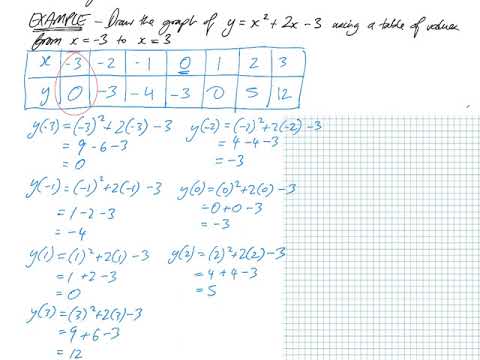 EXAMPLE - Draw the graph of y = x² + 2x - 3 using a table of values
from x = -3 to x = 3
x -3 -2 -1 0 1 2 3
y 0 -3 -4 -3 0 5 12
y(-3) = (-3)² + 2(-3) - 3
= 9 - 6 - 3
= 0
y(-2) = (-2)² + 2(-2) - 3
= 4 - 4 - 3
= -3
y(-1) = (-1)² + 2(-1) - 3
= 1 - 2 - 3
= -4
y(0) = (0)² + 2(0) - 3
= 0 + 0 - 3
= -3
y(1) = (1)² + 2(1) - 3
= 1 + 2 - 3
= 0
y(2) = (2)² + 2(2) - 3
= 4 + 4 - 3
= 5
y(3) = (3)² + 2(3) - 3
= 9 + 6 - 3
= 12